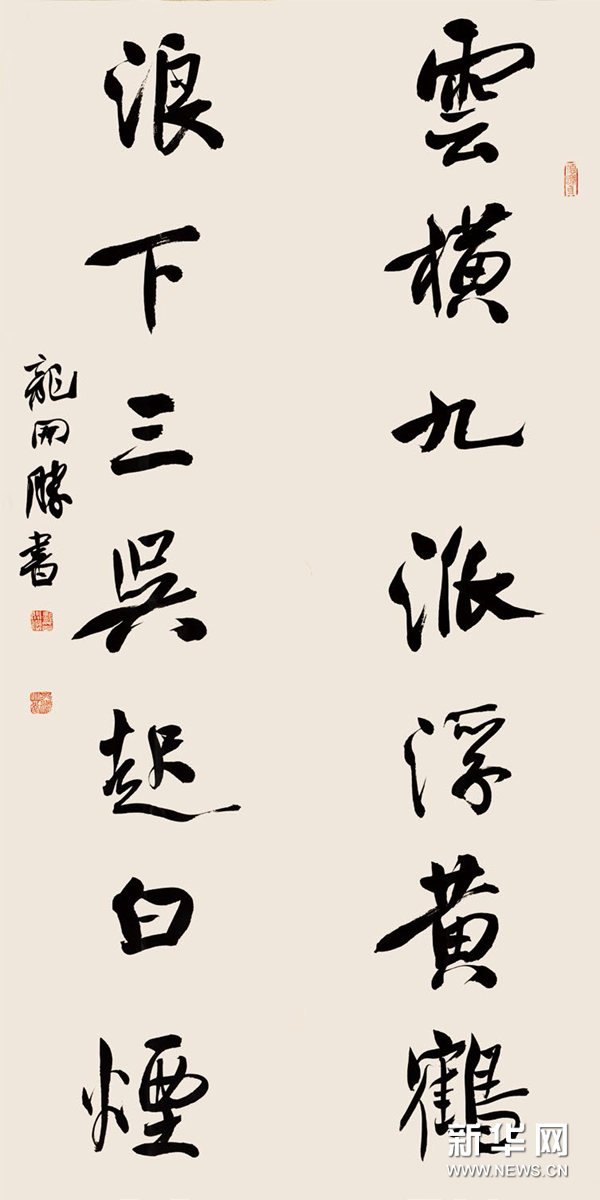 雲橫九派浮黃鶴
浪下三吳起白煙
龍開勝書
新华网
WWW.NEWS.CN